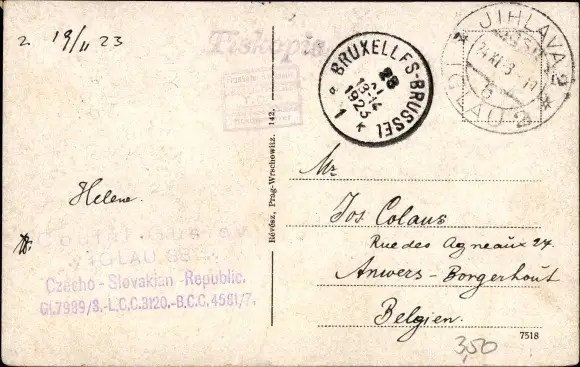 2 19/11 23
Tiskopis
BRUXELLES-BRUSSEL
1923
1 K
JIHLAVA 2
IGLAU 2
Helene.
IGLAU
Czecho - Slovakian - Republic.
Gl.7989/8.-L.C.C.3120.-B.C.C.4581/7.
Révész, Prag-Wrschowitz. 142.
Mr
Jos. Colaus
Rue des Agneaux 24
Anvers - Borgerhout
Belgien.
7518
3,50